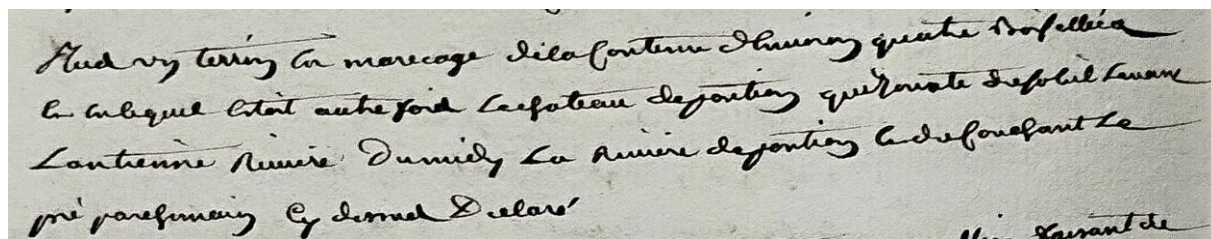 Plus un terrin en marecage dela Contenu d'Environ quatre Boissellées
en lequel Estoit autre fois Le chateau deportien qui Joinste de soleil Levant
Lantienne Riviere Dumidy La Riviere deportien & du Couchant Le
pré parchemin Cy dessus Declaré
faisant de